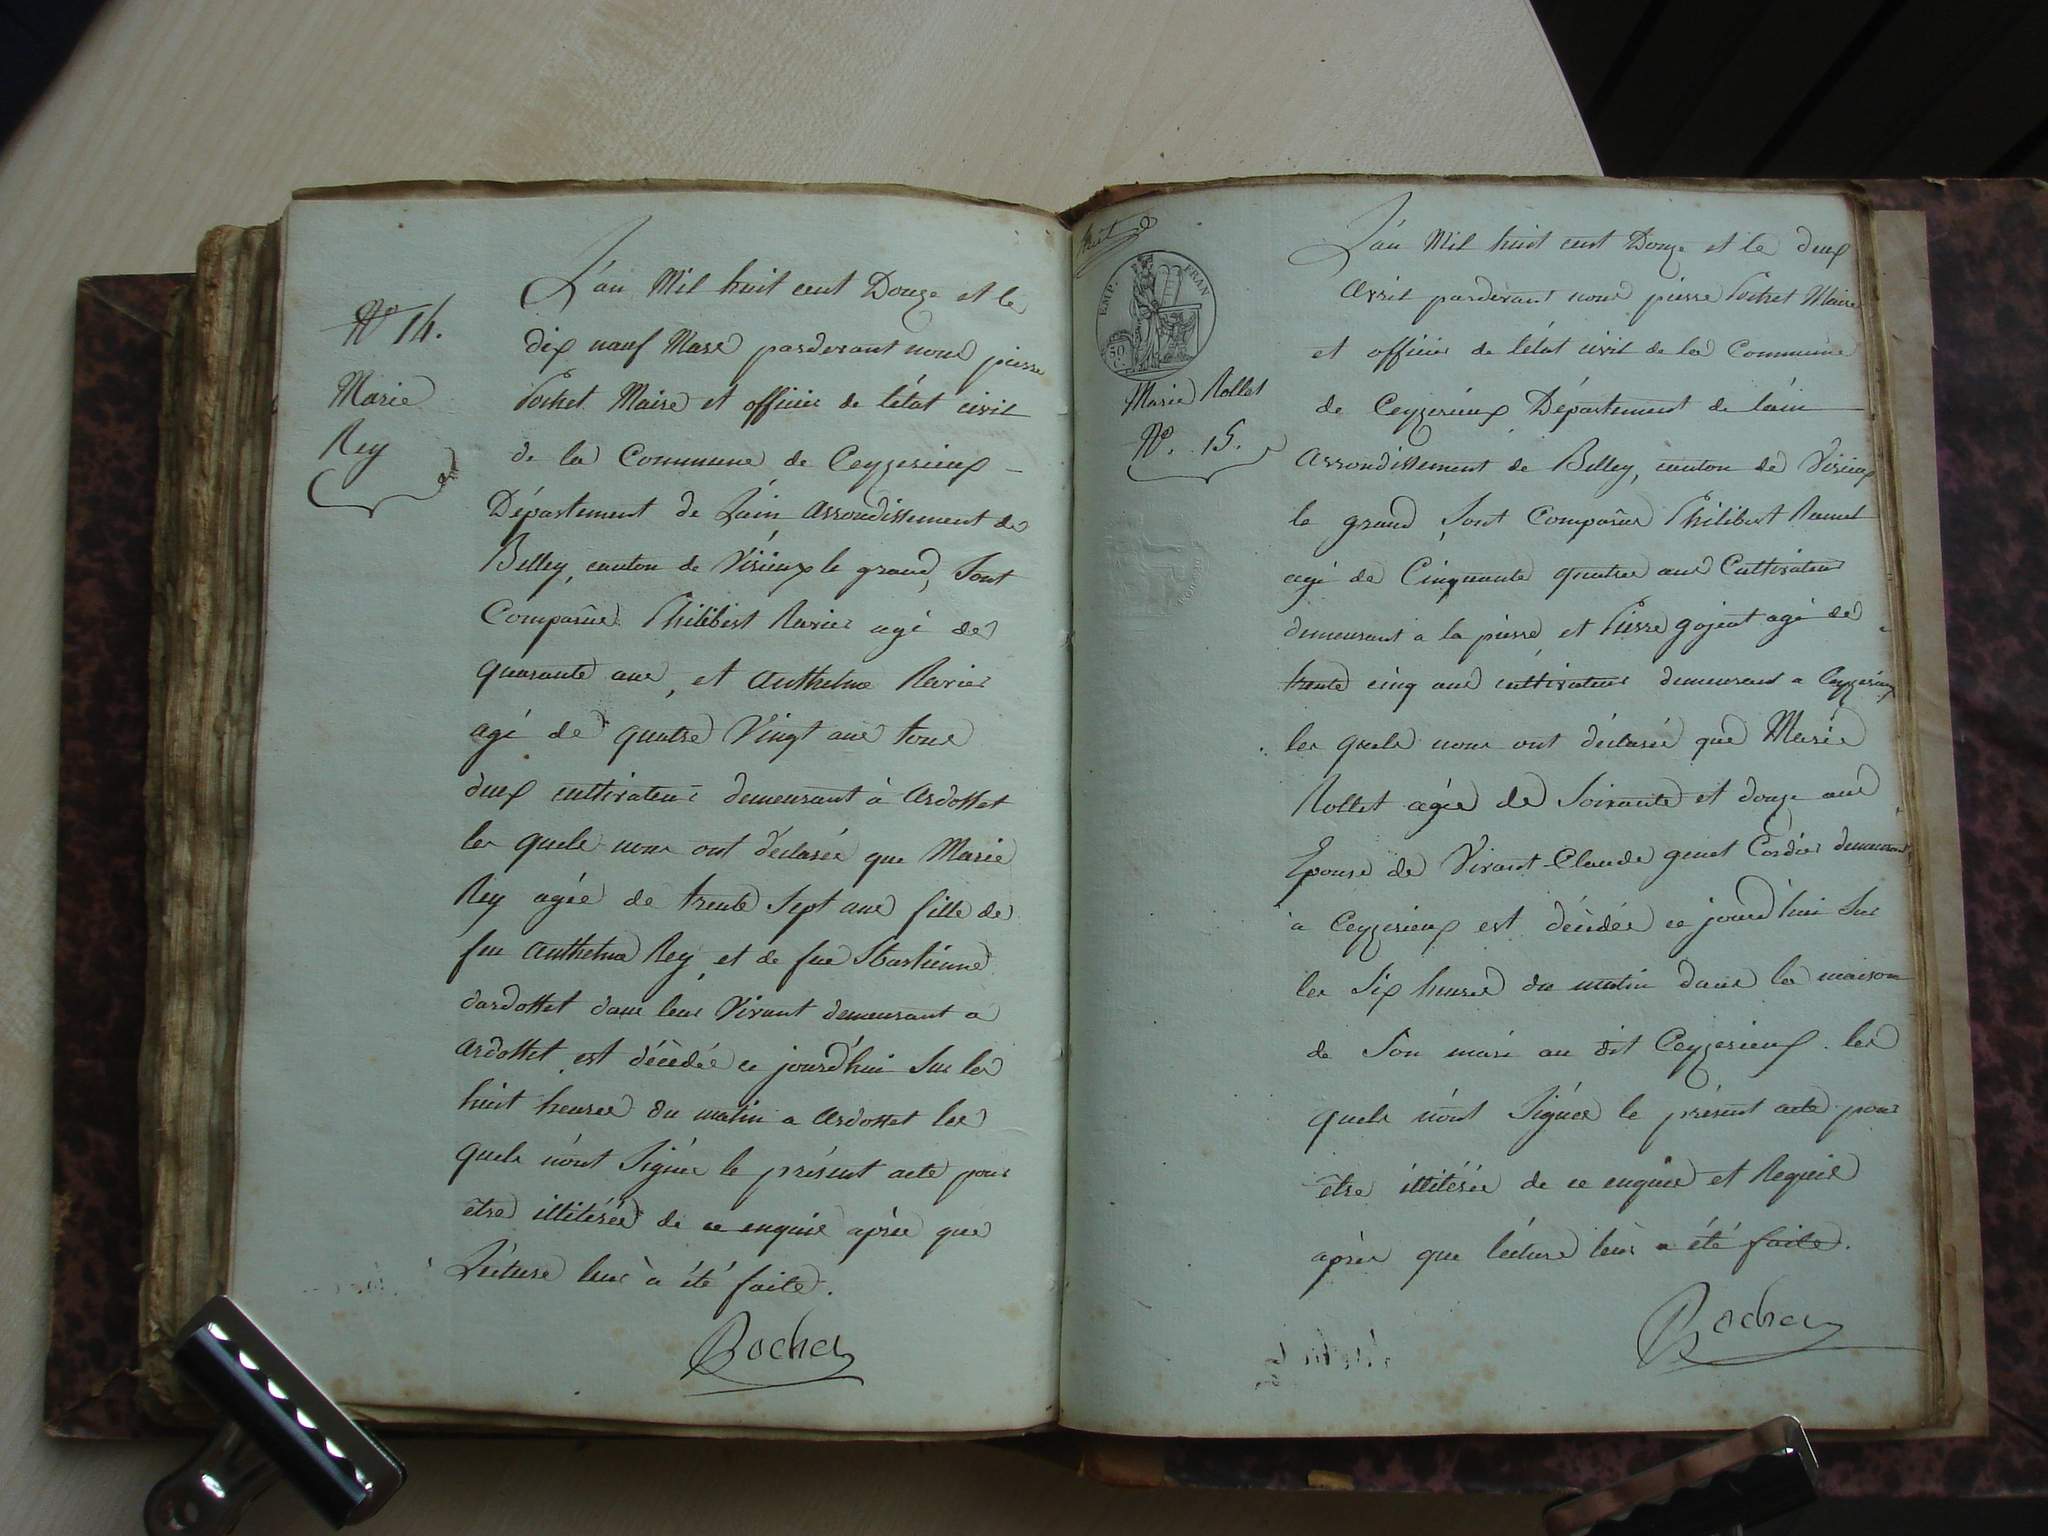 N° 14.
Marie
Rey
L'an Mil huit cent Douze et le
dix neuf Mars pardevant nous pierre
Pochet Maire et officier de l'état civil
de la Commune de Ceyzerieux
Département de L'ain Arrondissement de
Belley, canton de Virieux le grand, Sont
Comparûs Philibert Ravier agé de
quarante ans, et Anthelme Ravier
agé de quatre Vingt ans tous
deux cultivateurs demeurant à Ardosset
les quels nous ont déclarés que Marie
Rey agée de trente Sept ans fille de
feu Anthelme Rey, et de feue
dardosset dans leur Vivant demeurant a
Ardosset est décédée ce jourd'hui Sur les
huit heures du matin a Ardosset les
quels n'ont Signés le présent acte pour
être illitérés de ce enquis après que
Lécture leur à été faite.
Pochet
huit
EMP. FRAN
50
Marie Rollet
N°. 15.
L'an Mil huit cent Douze et le deux
Avril pardevant nous pierre Pochet Maire
et officier de l'état civil de la Commune
de Ceyzerieux Département de l'ain
Arrondissement de Belley, canton de Virieux
le grand, Sont Comparûs Philibert Ramel
agé de Cinquante quatre ans Cultivateur
demeurant a la pierre, et Pierre gojeat agé de
trente cinq ans cultivateur demeurant a Ceyzerieux
les quels nous ont déclarés que Marie
Rollet agée de Soixante et douze ans
Epouse de Vivant Claude genet Cordier demeurant
à Ceyzerieux est décédée ce jourd'hui Sur
les Six heures du matin dans la maison
de Son mari au dit Ceyzerieux. les
quels n'ont Signés le présent acte pour
être illitérés de ce enquis et Requis
après que lécture leur a été faite.
Pochet